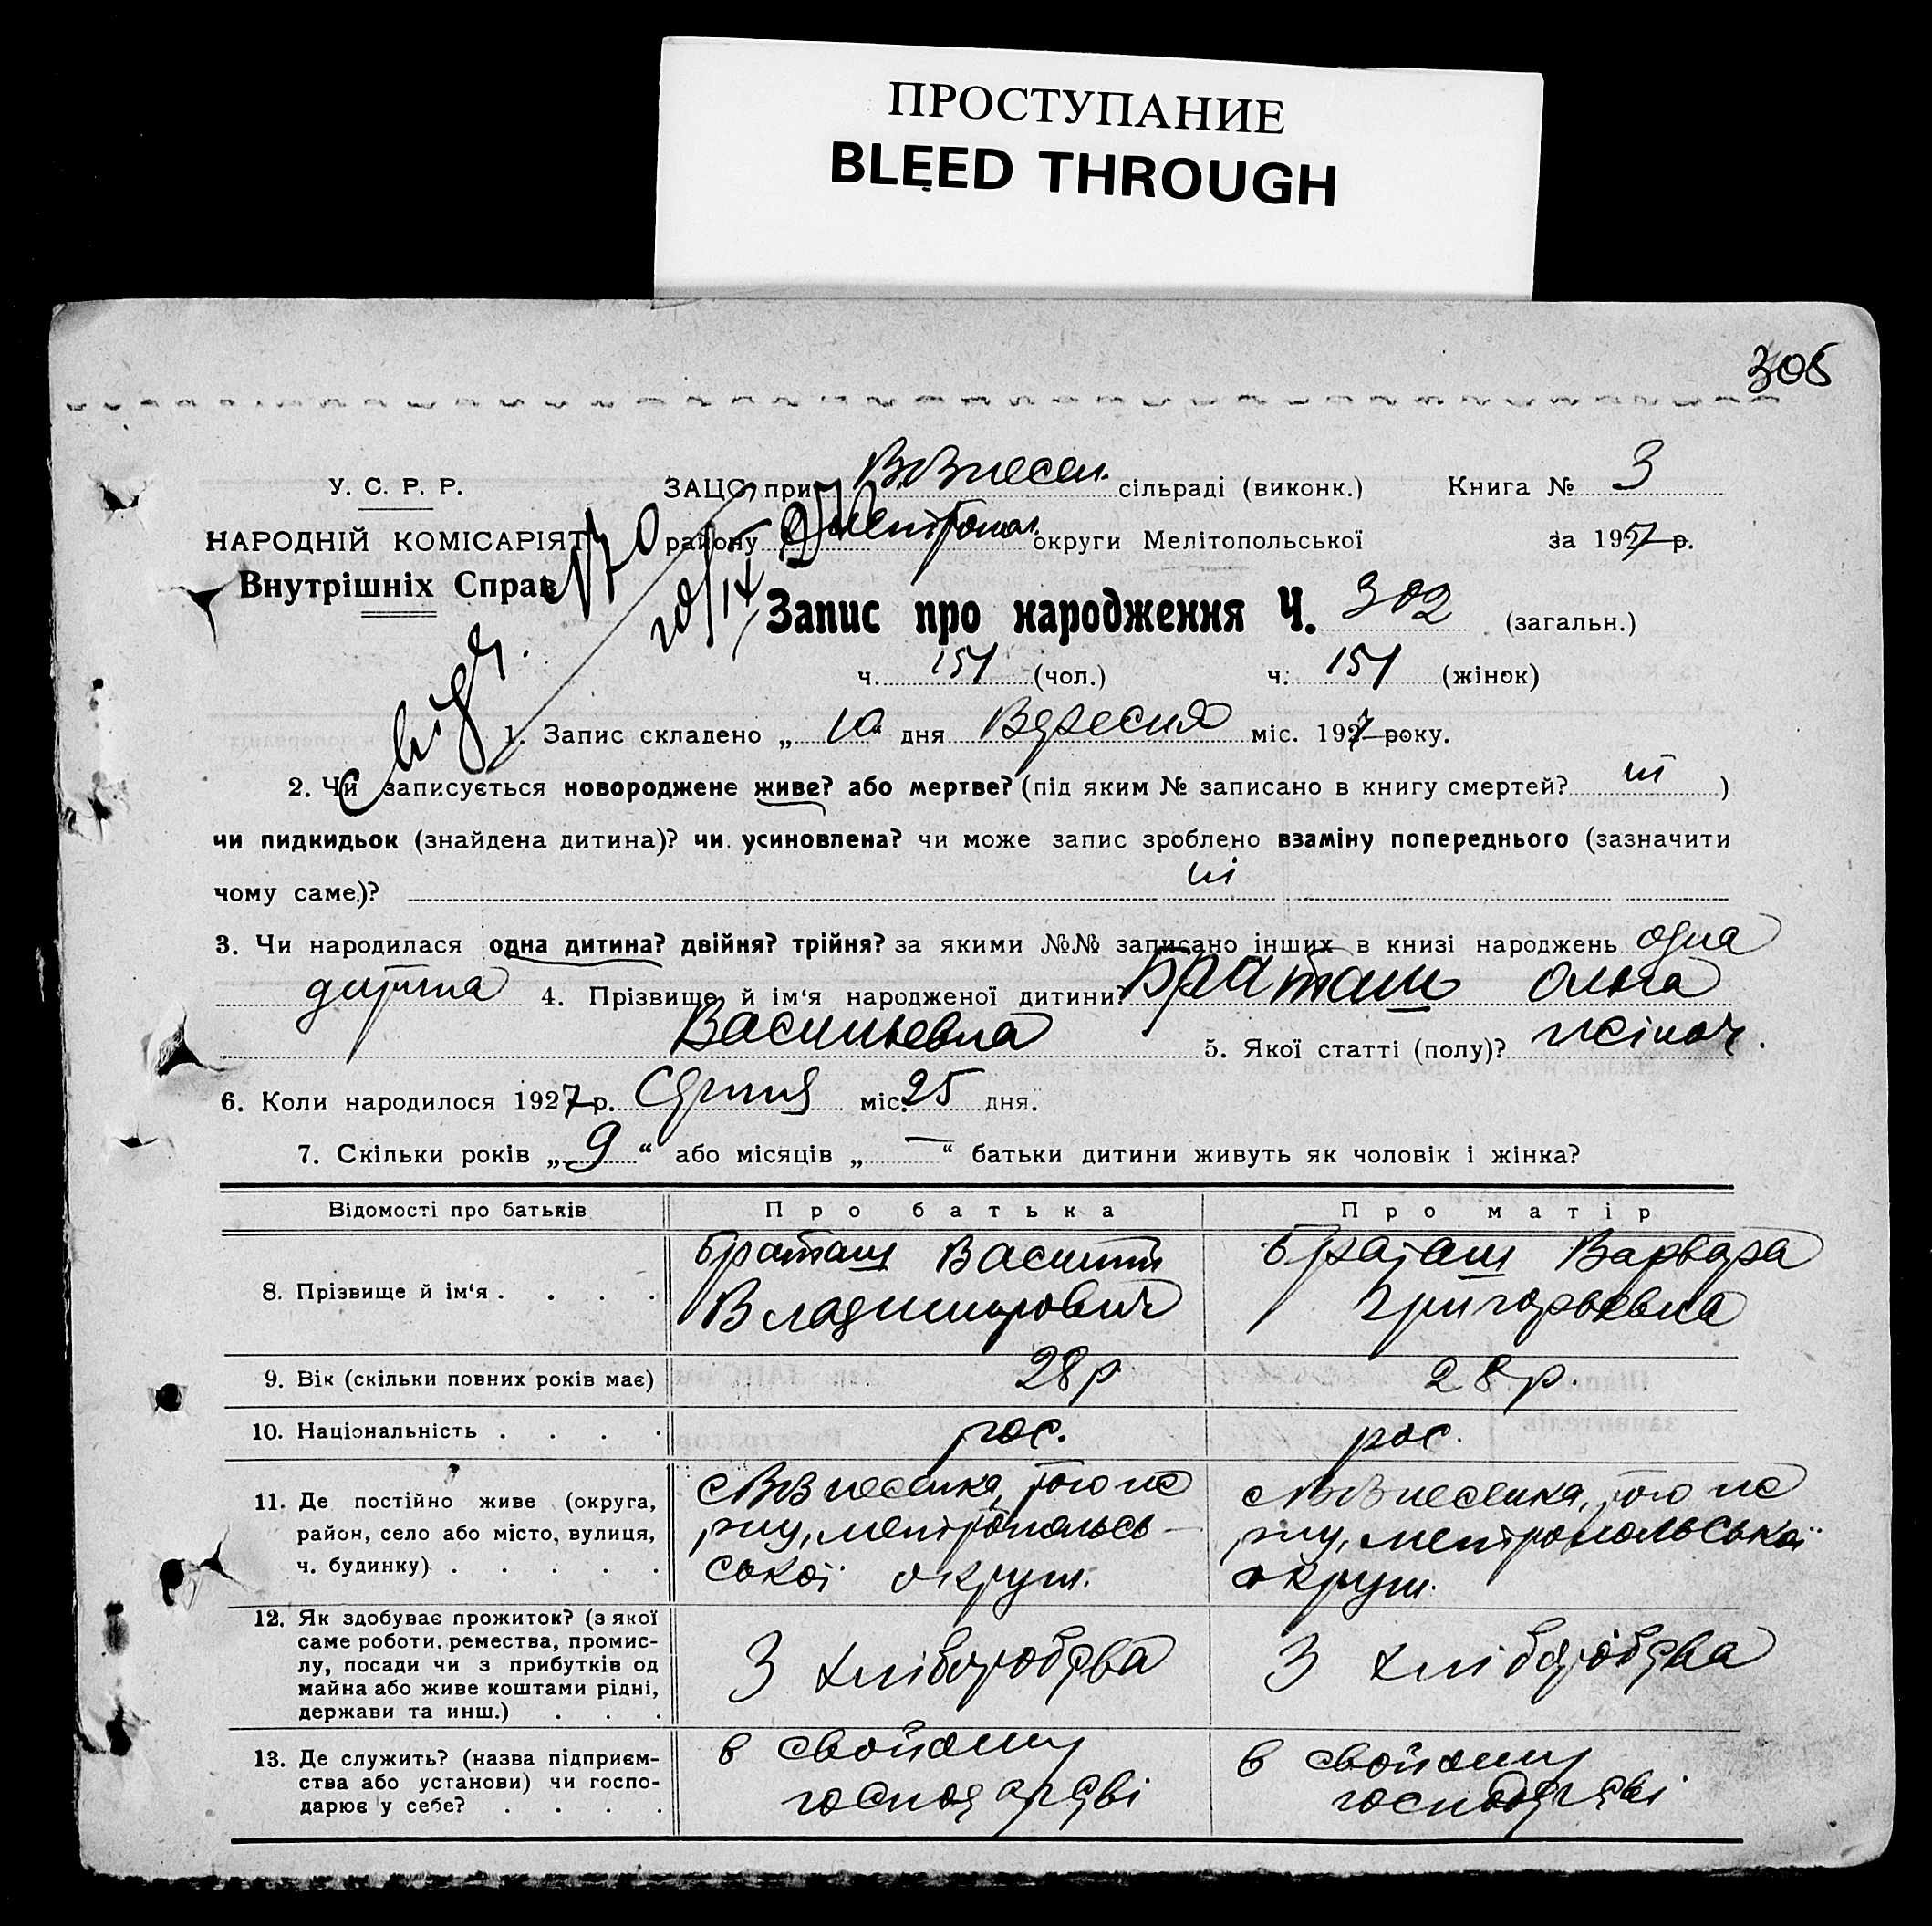 ПРОСТУПАНИЕ
BLEED THROUGH
305
У. С. Р. Р.
НАРОДНІЙ КОМІСАРІЯТ
Внутрішніх Справ
ЗАЦС при Вознесен. сільраді (виконк.) Книга № 3
району округи Мелітопольської за 1927 р.
Запис про народження Ч. 302 (загальн.)
ч. 151 (чол.) ч. 151 (жінок)
1. Запис складено „ 10 “ дня Вересня міс. 1927 року.
2. Чи записується новороджене живе? або мертве? (під яким № записано в книгу смертей? ні )
чи пидкидьок (знайдена дитина)? чи усиновлена? чи може запис зроблено взаміну попереднього (зазначити
чому саме)? ні
3. Чи народилася одна дитина? двійня? трійня? за якими №№ записано інших в книзі народжень одна
дитина 4. Прізвище й ім‘я народженої дитини? Браташ Ольга
Васильевна 5. Якої статті (полу)? жіноч.
6. Коли народилося 1927 р. Серпня міс. 25 дня.
7. Скільки років „ 9 “ або місяців „ — “ батьки дитини живуть як чоловік і жінка?
Відомості про батьків Про батька Про матір
8. Прізвище й ім‘я . . . . Браташ Василий Владимирович
Браташ Варвара Григорьевна
9. Вік (скільки повних років має) 28 р 28 р.
10. Національність . . . . рос. рос.
11. Де постійно живе (округа,
район, село або місто, вулиця,
ч. будинку) . . . . .
с Вознесенка, того ж
р-ну, Мелітопольсь-
ської округи.
с Вознесенка, того ж
р-ну, Мелітопольської
округи.
12. Як здобуває прожиток? (з якої
саме роботи, ремества, промис-
лу, посади чи з прибутків од
майна або живе коштами рідні,
держави та инш.) . . .
З хліборобства З хліборобства
13. Де служить? (назва підприєм-
ства або установи) чи госпо-
дарює у себе? . . . .
в свойому
господарстві
в свойому
господарстві